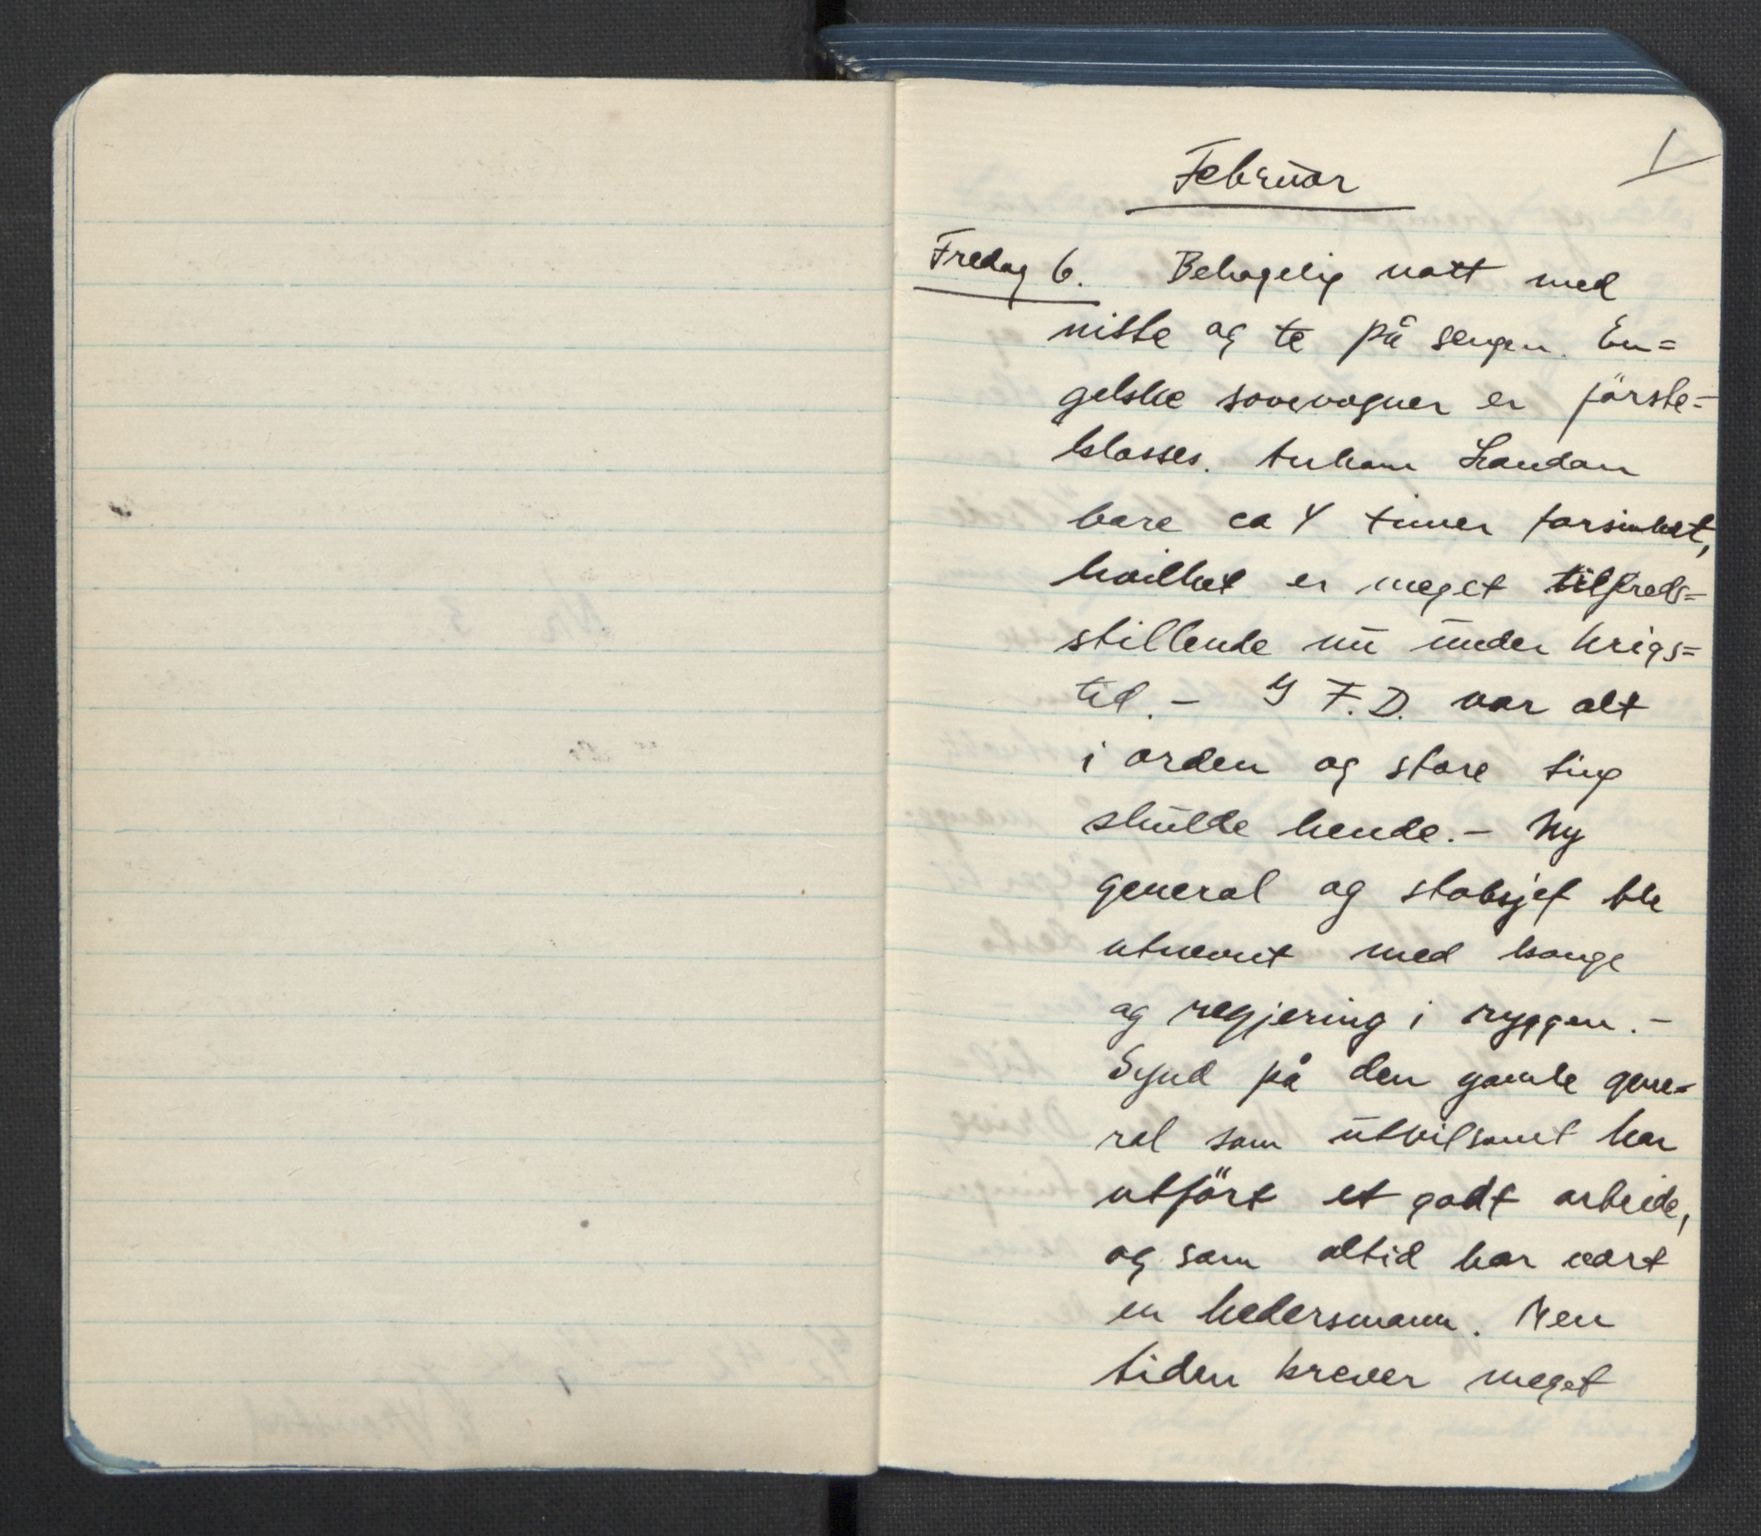 1
Februar
Fredag 6. Behagelig natt med
niste og te på sengen. En=
gelske sovevogner er første=
klasses. Ankom London
bare ca 4 timer forsinket,
hvilket er meget tilfreds=
stillende nu under krigs=
tid. – I F.D. var alt
i orden og store ting
skulde hende. – Ny
general og stabsjef ble
utnevnt med konge
og regjering i ryggen. –
Synd på den gamle gene=
ral som utvilsomt har
utført et godt arbeide,
og som altid har vært
en hedersmann. Men
tiden krever meget